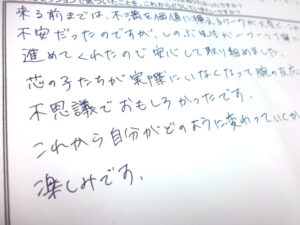 来る前までは、不満を価値に換えるワークが大変
不安だったのですが、しのぶ先生が一つ一つ
進めてくれたので安心して取り組めました。
芯の子たちが実際にいなくなって腕の反応
不思議でおもしろかったです。
これから自分がどのように変わっていくか
楽しみです。